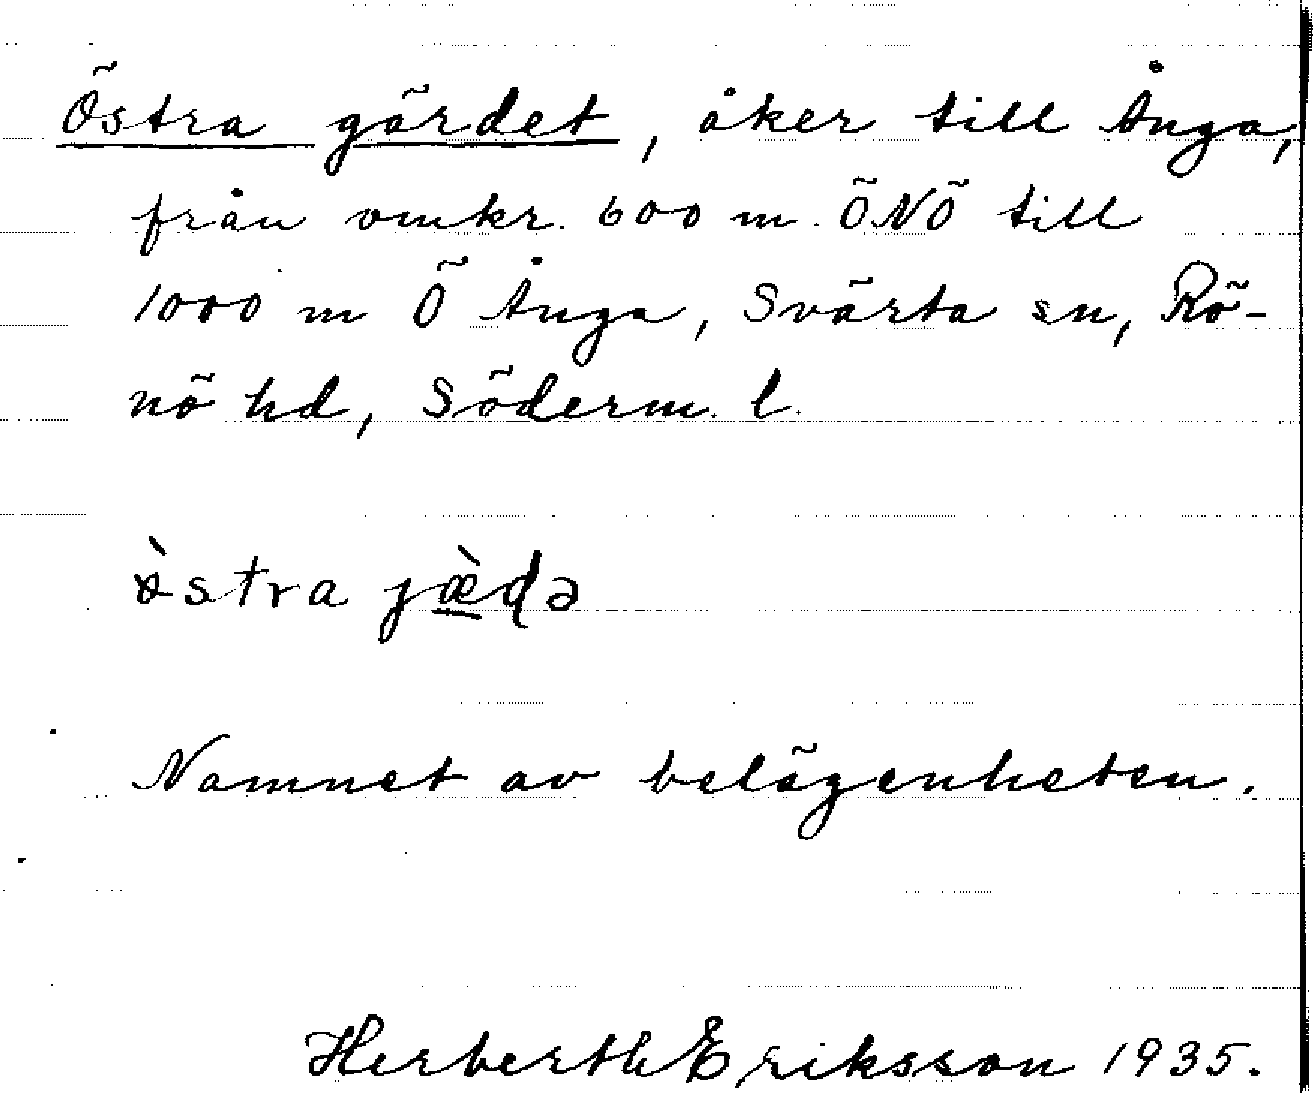 Östra gärdet, åker till Ånga,
från omkr. 600 m. ÖNÖ till
1000 m Ö Ånga, Svärta sn, Rö-
nö hd, Söderm. l.
òstra jæ̀ḍə
Namnet av belägenheten.
Herberth Eriksson 1935.